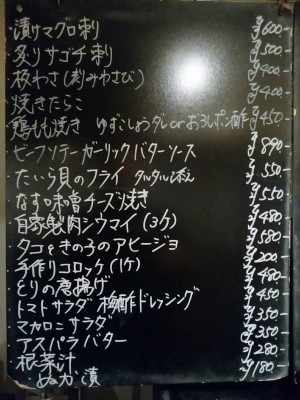 ・漬けマグロ刺 ¥600-
・炙りサゴチ刺 ¥500-
・板わさ(刻みわさび) ¥400-
・焼きたらこ ¥400-
・鶏もも焼き ゆずこしょうダレorおろしポン酢 ¥450-
・ビーフソテーガーリックバターソース ¥890-
・たいら貝のフライ タルタル添え ¥550-
・なすの味噌チーズ焼き ¥550-
・自家製肉シウマイ(3ケ) ¥480-
・タコときの子のアヒージョ ¥580-
・手作りコロッケ(1ケ) ¥200-
・とりの唐揚げ ¥480-
・トマトサラダ 梅酢ドレッシング ¥450-
・マカロニサラダ ¥350-
・アスパラバター ¥350-
・根菜汁 ¥280-
・ぬか漬 ¥180-